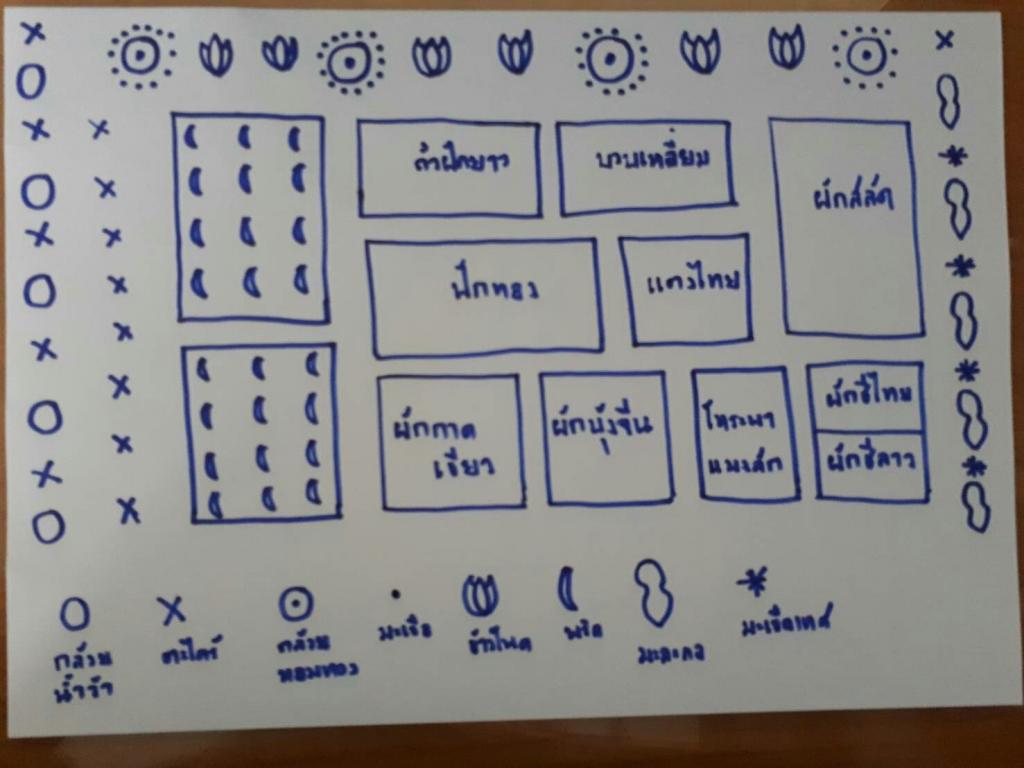 ถั่วฝักยาว
บวบเหลี่ยม
ผักสลัด
ฟักทอง
แตงไทย
ผักกาด
เขียว
ผักบุ้งจีน
โหระพา
แมงลัก
ผักชีไทย
ผักชีลาว
กล้วย
น้ำว้า
ตะไคร้
กล้วย
หอมทอง
มะเขือ
ข้าวโพด
พริก
มะละกอ
มะเขือเทศ